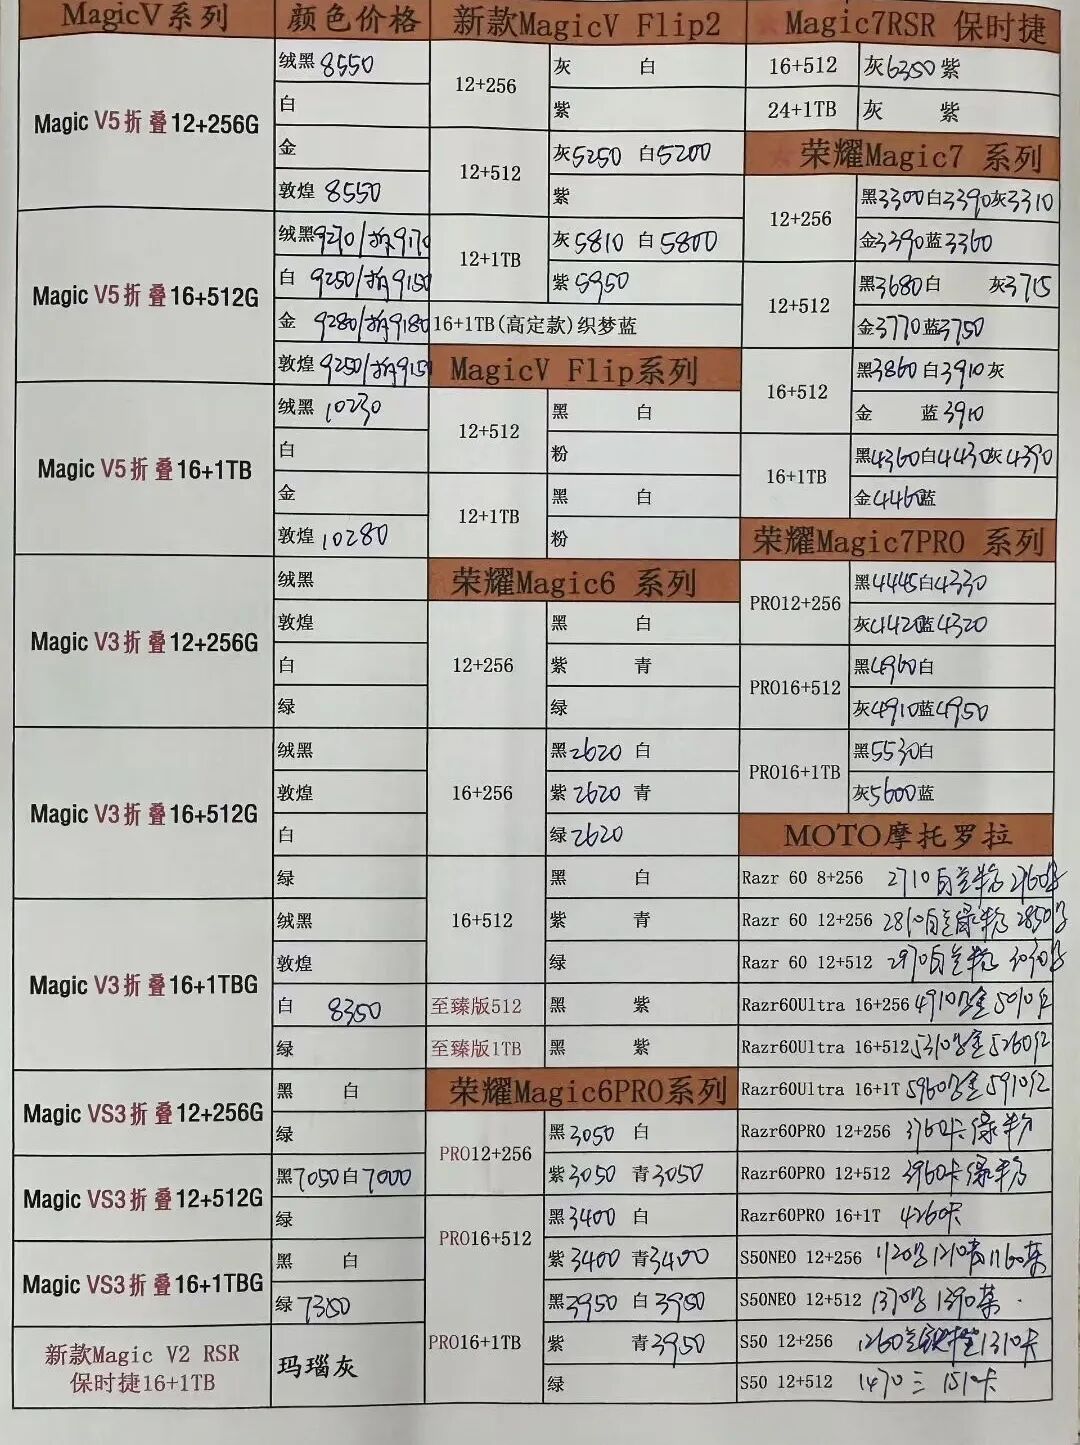 MagicV系列 颜色价格
Magic V5折叠12+256G
绒黑 8550
白
金
敦煌 8550
Magic V5折叠16+512G
绒黑9270/拆9170
白 9250/拆9150
金 9280/拆9180
敦煌 9250/拆9150
Magic V5折叠16+1TB
绒黑 10230
白
金
敦煌 10280
Magic V3折叠12+256G
绒黑
敦煌
白
绿
Magic V3折叠16+512G
绒黑
敦煌
白
绿
Magic V3折叠16+1TBG
绒黑
敦煌
白 8350
绿
Magic VS3折叠12+256G
黑 白
绿
Magic VS3折叠12+512G
黑7050白7000
绿
Magic VS3折叠16+1TBG
黑 白
绿
新款Magic V2 RSR
保时捷16+1TB
玛瑙灰
新款MagicV Flip2
12+256
灰 白
紫
12+512
灰5250 白5200
紫
12+1TB
灰5810 白5800
紫5950
16+1TB(高定款)织梦蓝
MagicV Flip系列
12+512
黑 白
粉
12+1TB
黑 白
粉
荣耀Magic6 系列
12+256
黑 白
紫 青
绿
16+256
黑2620 白
紫2620 青
绿2620
16+512
黑 白
紫 青
绿
至臻版512 黑 紫
至臻版1TB 黑 紫
荣耀Magic6PRO系列
PRO12+256
黑3050 白
紫3050 青3050
PRO16+512
黑3400 白
紫3400 青3400
PRO16+1TB
黑3950 白3950
紫 青3950
绿
Magic7RSR 保时捷
16+512 灰6350紫
24+1TB 灰 紫
荣耀Magic7 系列
12+256
黑3300白3390灰3310
金3390蓝3360
12+512
黑3680白 灰3715
金3770蓝3750
16+512
黑3860白3910灰
金 蓝3910
16+1TB
黑4360白4430灰4390
金4460蓝
荣耀Magic7PRO 系列
PRO12+256
黑4445白4330
灰4420蓝4320
PRO16+512
黑4960白
灰4910蓝4950
PRO16+1TB
黑5530白
灰5600蓝
MOTO摩托罗拉
Razr 60 8+256 2710
Razr 60 12+256 2810
Razr 60 12+512 2970
Razr60Ultra 16+256 4910 5010红
Razr60Ultra 16+512 5310 5260红
Razr60Ultra 16+1T 5960 5910红
Razr60PRO 12+256 3760卡绿粉
Razr60PRO 12+512 3960卡绿粉
Razr60PRO 16+1T 4260卡
S50NEO 12+256 1210 1160
S50NEO 12+512 1370 1390
S50 12+256 1260 1310卡
S50 12+512 1470 三 1510卡